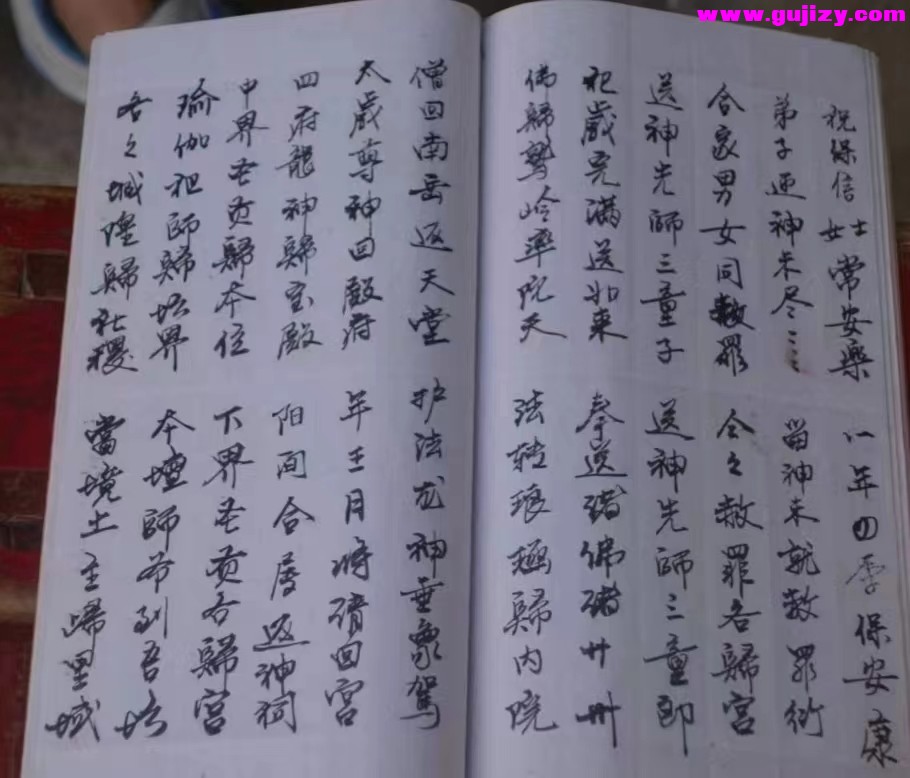 www.gujizy.com
祝保信士女常安樂 一年四季保安康
弟子迎神未尽 留神未就赦罪
合家男女同赦罪 合々赦罪各歸宮
送神先師三童子 送神先師三童郎
祀歲完滿送如來 奉送諸佛諸
佛歸鷲岭率院天 法轉琅歸内院
僧回南岳返天堂 护法龙神垂象駕
太歲尊神回殿府 年王月將请回宮
四府龍神歸宝殿 阳间合返神祠
中界圣贡歸本位 下界圣贡各歸宮
瑜伽祖師歸坛界 本壇師爷到吾坛
各々城隍歸社稷 當境土主歸里域